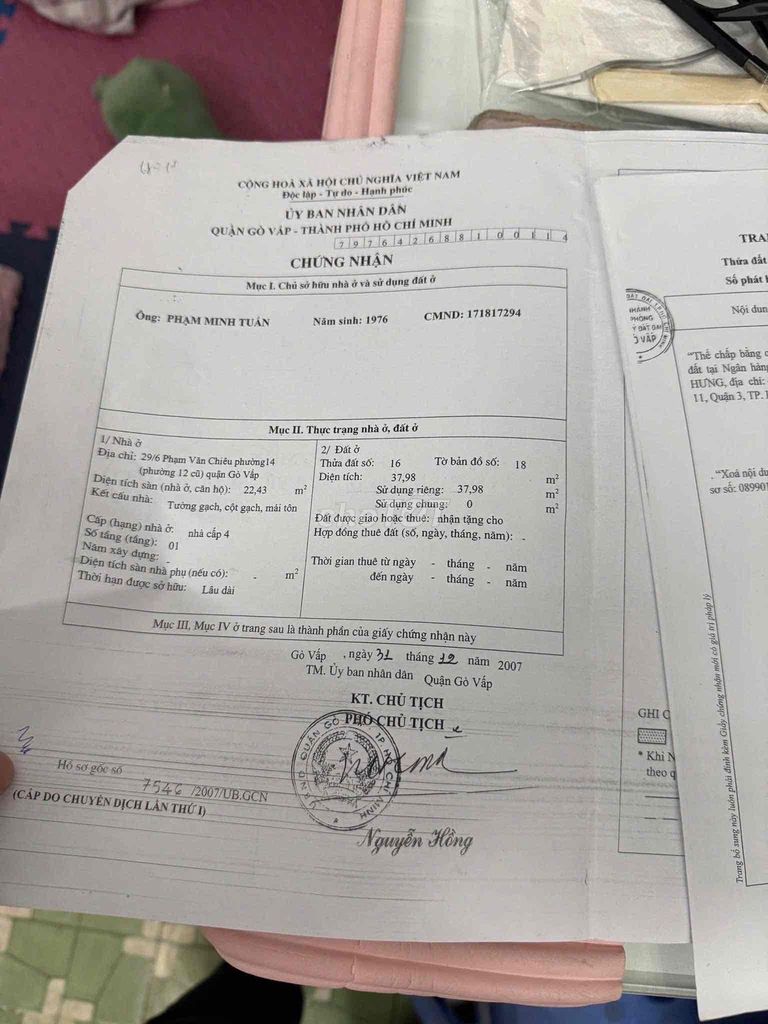 CỘNG HOÀ XÃ HỘI CHỦ NGHĨA VIỆT NAM
Độc lập - Tự do - Hạnh phúc
ỦY BAN NHÂN DÂN
QUẬN GÒ VẤP - THÀNH PHỐ HỒ CHÍ MINH
797642688100114
CHỨNG NHẬN
Mục I. Chủ sở hữu nhà ở và sử dụng đất ở
Ông: PHẠM MINH TUẤN Năm sinh: 1976 CMND: 171817294
Mục II. Thực trạng nhà ở, đất ở
1/ Nhà ở
Địa chỉ: 29/6 Phạm Văn Chiêu phường14
(phường 12 cũ) quận Gò Vấp
Diện tích sàn (nhà ở, căn hộ): 22,43 m²
Kết cấu nhà: Tường gạch, cột gạch, mái tôn
Cấp (hạng) nhà ở: nhà cấp 4
Số tầng (tầng): 01
Năm xây dựng: -
Diện tích sàn nhà phụ (nếu có): - m²
Thời hạn được sở hữu: Lâu dài
2/ Đất ở
Thửa đất số: 16 Tờ bản đồ số: 18
Diện tích: 37,98 m²
Sử dụng riêng: 37,98 m²
Sử dụng chung: 0 m²
Đất được giao hoặc thuê: nhận tặng cho
Hợp đồng thuê đất (số, ngày, tháng, năm): -
Thời gian thuê từ ngày - tháng - năm
đến ngày - tháng - năm
Mục III, Mục IV ở trang sau là thành phần của giấy chứng nhận này
Gò Vấp , ngày 31 tháng 12 năm 2007
TM. Ủy ban nhân dân Quận Gò Vấp
KT. CHỦ TỊCH
PHÓ CHỦ TỊCH
Nguyễn Hồng
Hồ sơ gốc số 7546 /2007/UB.GCN
(CẤP DO CHUYỂN DỊCH LẦN THỨ I)
TRA
Thửa đất
Số phát h
Nội dun
"Thế chấp bằng
đất tại Ngân hàng
HƯNG, địa chỉ:
11, Quận 3, TP.
."Xoá nội du
sơ số: 089901
GHI C
* Khi N
theo q
Trang bổ sung này luôn phải đính kèm Giấy chứng nhận mới có giá trị pháp lý